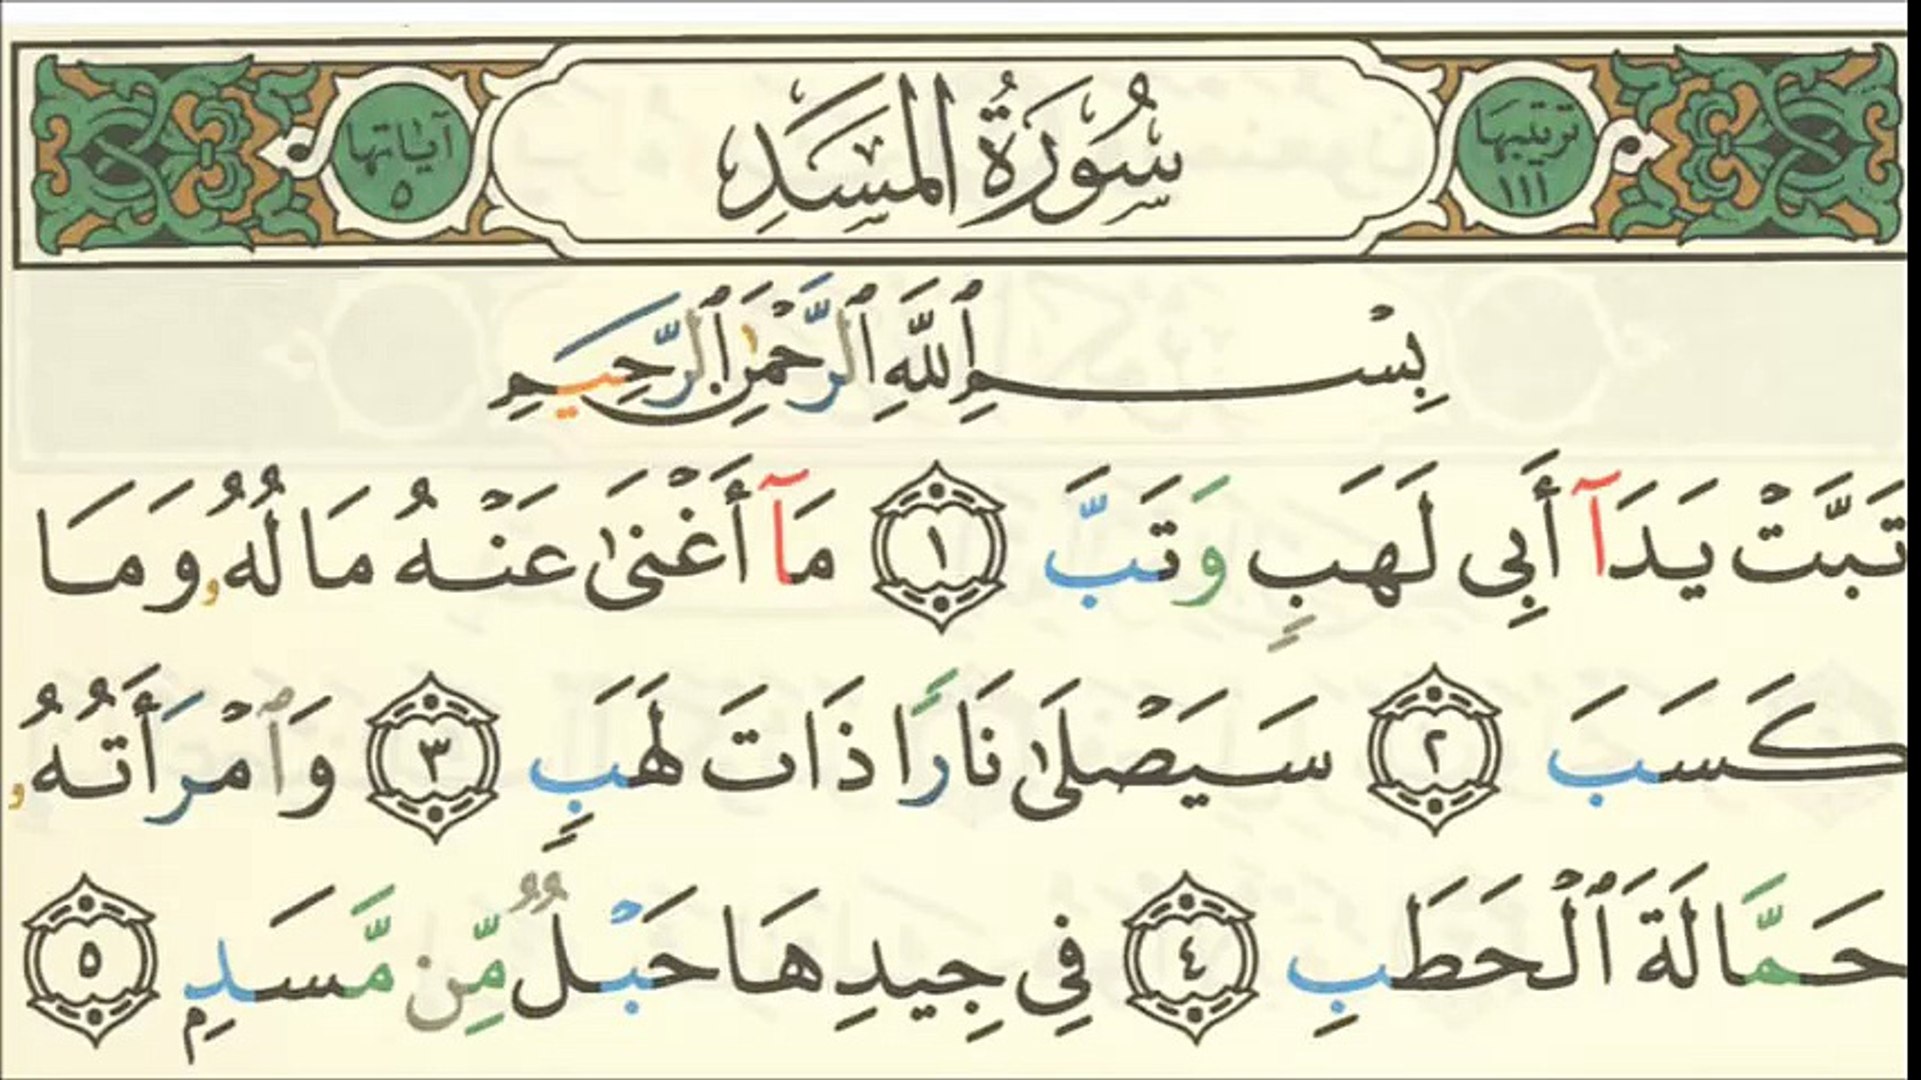 ترتيبها ١١١
سُورَةُ المَسَدِ
آيَاتها ٥
بِسْمِ ٱللَّهِ ٱلرَّحْمَٰنِ ٱلرَّحِيمِ
تَبَّتْ يَدَآ أَبِى لَهَبٍ وَتَبَّ ١ مَآ أَغْنَىٰ عَنْهُ مَالُهُۥ وَمَا
كَسَبَ ٢ سَيَصْلَىٰ نَارًا ذَاتَ لَهَبٍ ٣ وَٱمْرَأَتُهُۥ
حَمَّالَةَ ٱلْحَطَبِ ٤ فِى جِيدِهَا حَبْلٌ مِّن مَّسَدٍۭ ٥